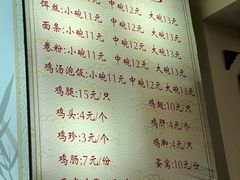 饵丝:小碗11元 中碗12元 大碗13元
面条:小碗11元 中碗12元 大碗13元
卷粉:小碗11元 中碗12元 大碗13元
鸡汤泡饭:小碗11元 中碗12元 大碗13元
鸡腿:15元/只 鸡翅:10元/只
鸡头:4元/个 鸡肝:4元/个
鸡珍:3元/个 鸡脚:4元/只
鸡肠:7元/份 蛋窝:10元/份